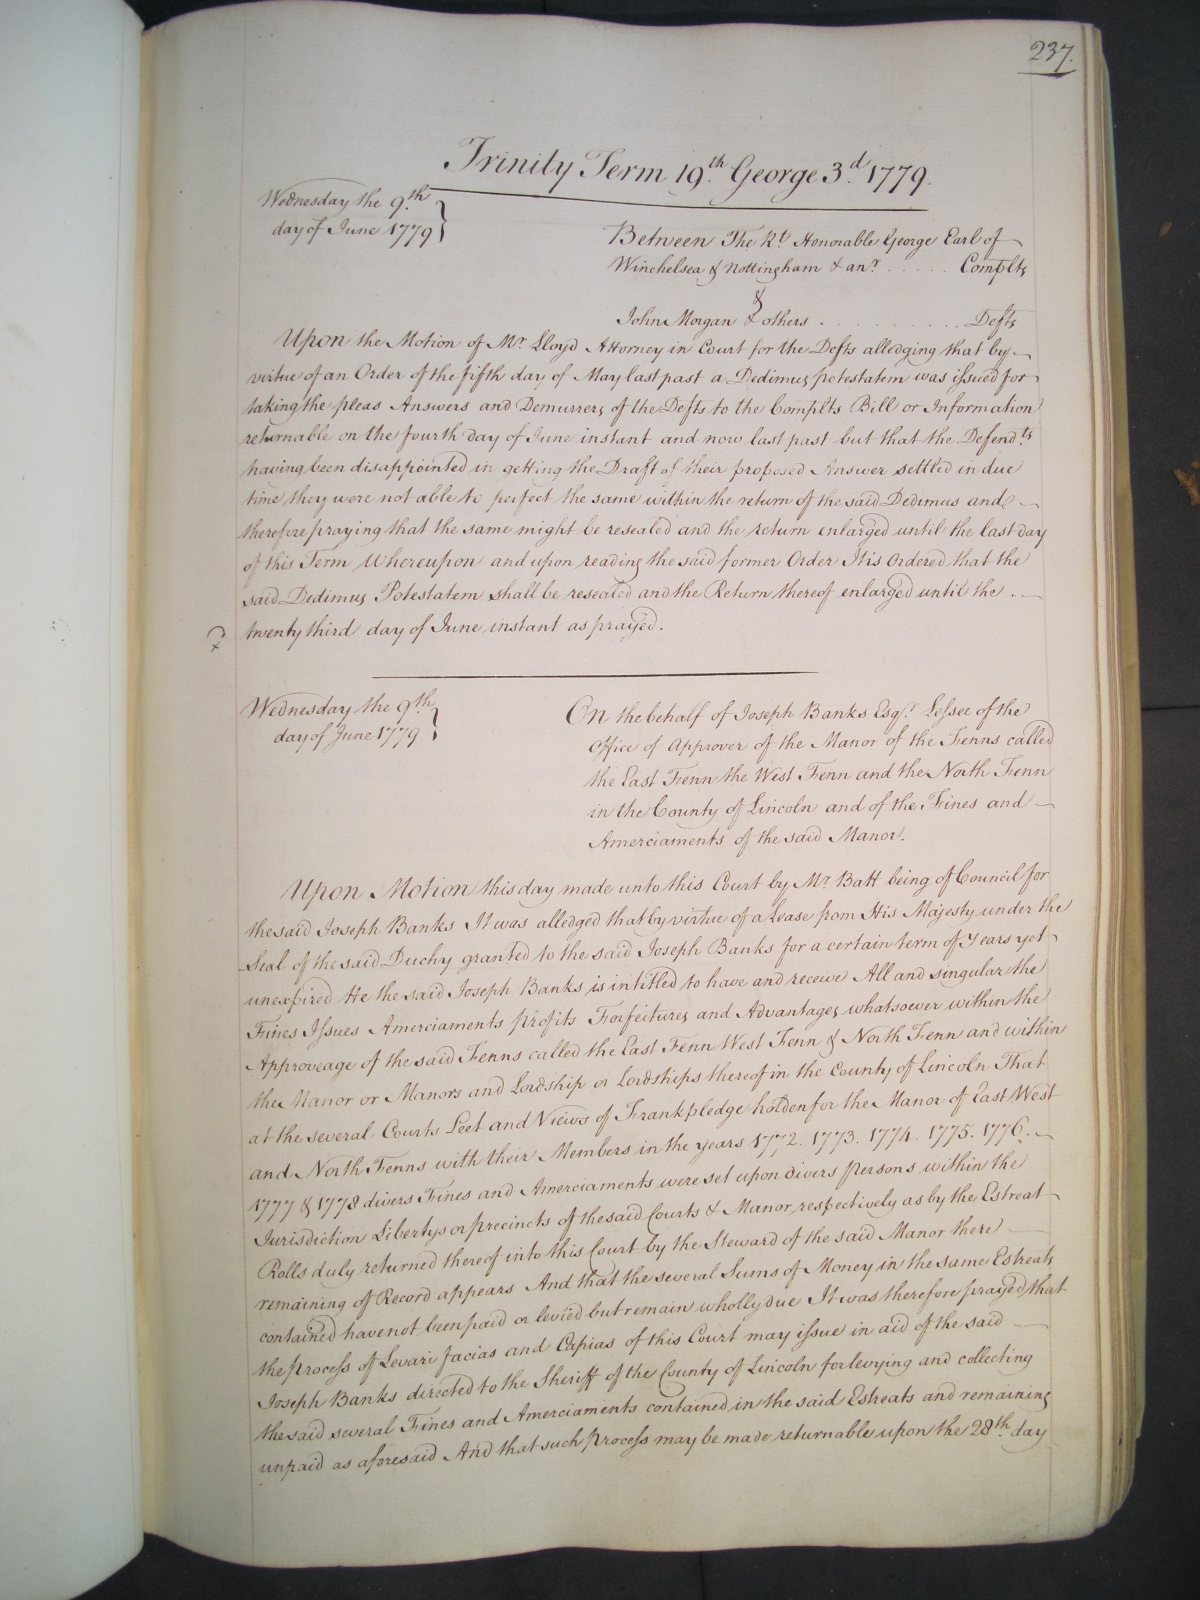 237.
Trinity Term 19th George 3d 1779.
Wednesday the 9th
day of June 1779
Between The Rt Honorable George Earl of
Winchelsea & Nottingham & anr . . . . . Complts
&
John Morgan & others . . . . . . . . . . Defts
Upon the Motion of Mr Lloyd Attorney in Court for the Defts alledging that by
virtue of an Order of the fifth day of May last past a Dedimus potestatem was issued for
taking the pleas Answers and Demurrers of the Defts to the Complts Bill or Information
returnable on the fourth day of June instant and now last past but that the Defendts
having been disappointed in getting the Draft of their proposed Answer settled in due
time they were not able to perfect the same within the return of the said Dedimus and
therefore praying that the same might be resealed and the return enlarged until the last day
of this Term Whereupon and upon reading the said former Order It is Ordered that the
said Dedimus Potestatem shall be resealed and the Return thereof enlarged until the
twenty third day of June instant as prayed.
Wednesday the 9th
day of June 1779
On the behalf of Joseph Banks Esqr. Lessee of the
Office of Approver of the Manor of the Fenns called
the East Fenn the West Fenn and the North Fenn
in the County of Lincoln and of the Fines and
Amerciaments of the said Manor.
Upon Motion this day made unto this Court by Mr Batt being of Council for
the said Joseph Banks It was alledged that by virtue of a Lease from His Majesty under the
Seal of the said Duchy granted to the said Joseph Banks for a certain term of Years yet
unexpired He the said Joseph Banks is intitled to have and receive All and singular the
Fines Issues Amerciaments profits Forfeitures and Advantages whatsoever within the
Approveage of the said Fenns called the East Fenn West Fenn & North Fenn and within
the Manor or Manors and Lordship or Lordships thereof in the County of Lincoln That
at the several Courts Leet and Views of Frankpledge holden for the Manor of East West
and North Fenns with their Members in the years 1772. 1773. 1774. 1775. 1776.
1777 & 1778 divers Fines and Amerciaments were set upon divers persons within the
Jurisdiction Libertys or precincts of the said Courts & Manor respectively as by the Estreat
Rolls duly returned thereof into this Court by the Steward of the said Manor there
remaining of Record appears And that the several Sums of Money in the same Estreats
contained have not been paid or levied but remain wholly due It was therefore prayed that
the process of Levari facias and Capias of this Court may issue in aid of the said
Joseph Banks directed to the Sheriff of the County of Lincoln for levying and collecting
the said several Fines and Amerciaments contained in the said Estreats and remaining
unpaid as aforesaid And that such process may be made returnable upon the 28th day